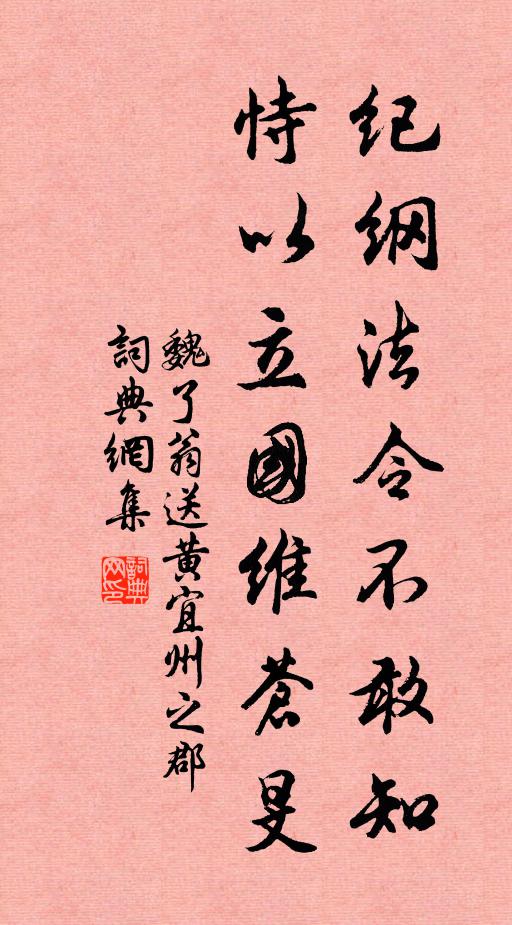 紀綱法令不敢知
恃以立國維蒼旻
魏了翁送黄宜州之郡
詞典網集
詞典网印